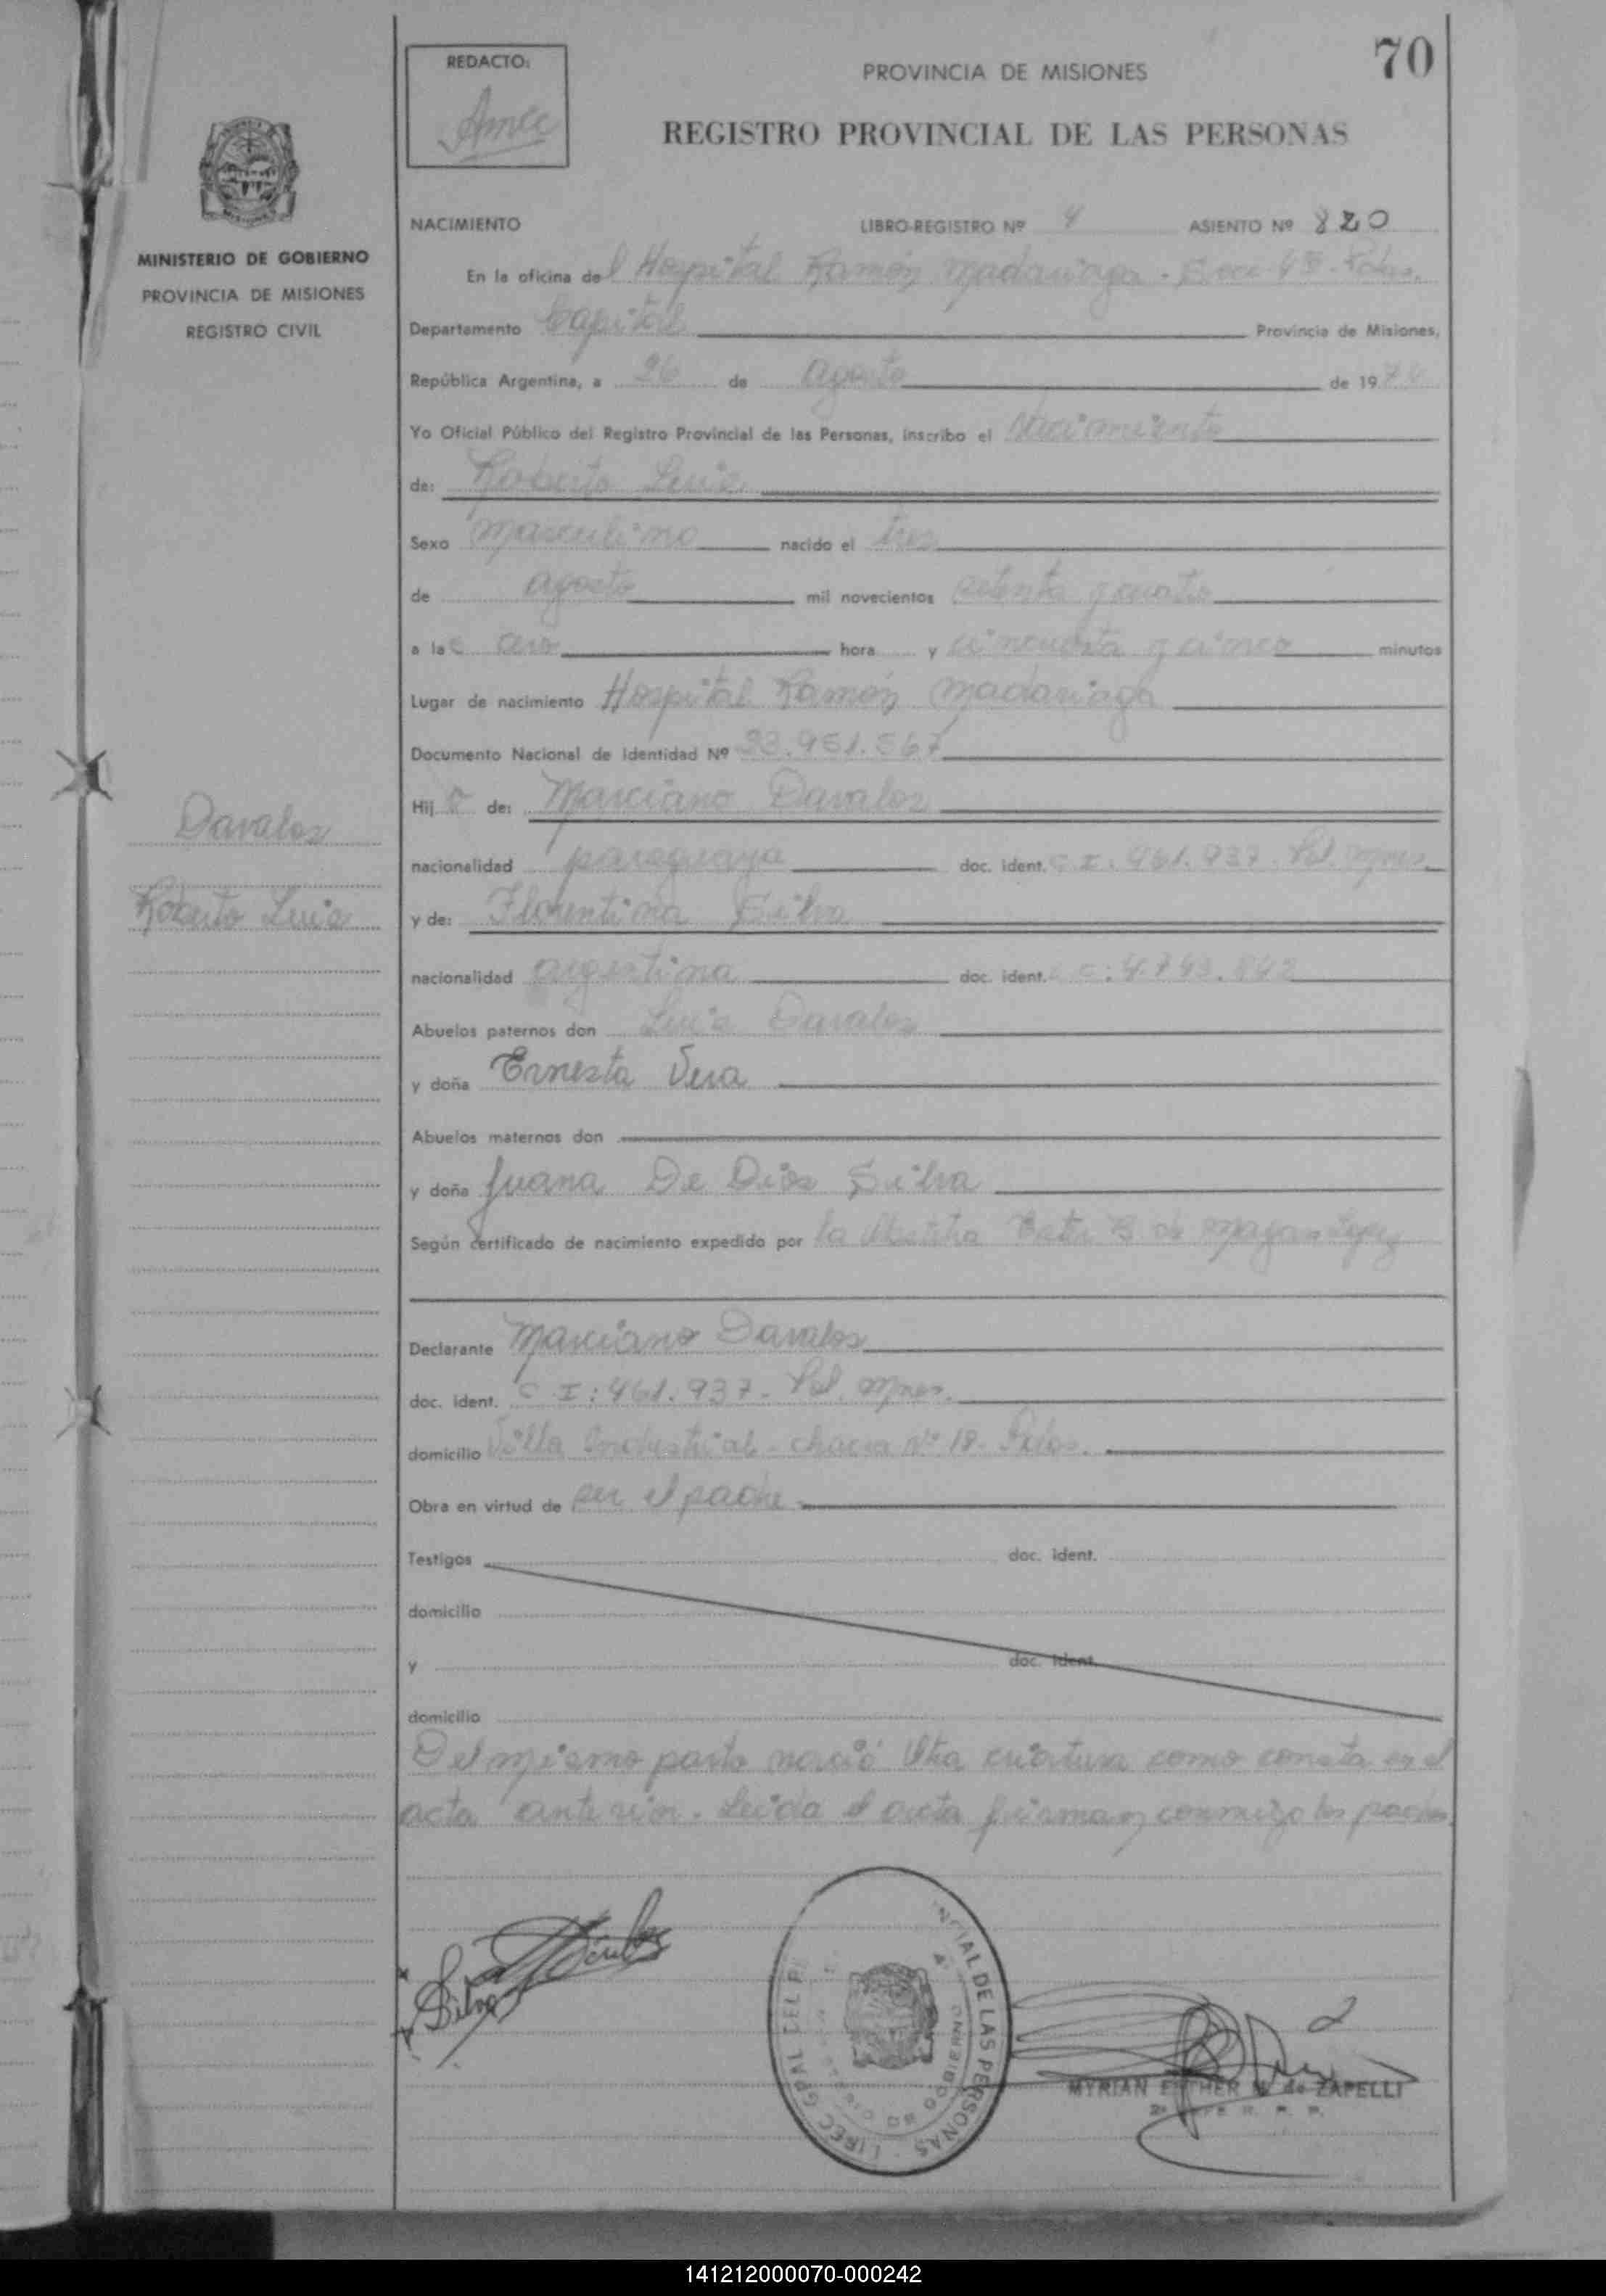 70
REDACTO:
PROVINCIA DE MISIONES
REGISTRO PROVINCIAL DE LAS PERSONAS
MINISTERIO DE GOBIERNO
PROVINCIA DE MISIONES
REGISTRO CIVIL
NACIMIENTO LIBRO-REGISTRO Nº 4 ASIENTO Nº 820
En la oficina del Hospital Ramón Madariaga -
Departamento Capital Provincia de Misiones,
República Argentina, a 26 de agosto de 1974
Yo Oficial Público del Registro Provincial de las Personas, inscribo el Nacimiento
de: Roberto Luis
Sexo masculino nacido el tres
de agosto mil novecientos setenta y cuatro
a las cero hora y cincuenta y cinco minutos
Lugar de nacimiento Hospital Ramón Madariaga
Documento Nacional de Identidad Nº 23.951.567
Hijo de: Marciano Davalos
Davalos
nacionalidad paraguaya doc. ident. C.I. 461.937. Pol. Mnes.
Roberto Luis
y de: Florentina Silva
nacionalidad argentina doc. ident. 4.743.842
Abuelos paternos don Luis Davalos
y doña Ernesta Vera
Abuelos maternos don
y doña Juana De Dios Silva
Según certificado de nacimiento expedido por la
Declarante Marciano Davalos
doc. ident. C I: 461.937. Pol. Mnes.
domicilio Villa Industrial - chacra Nº 18. Pdas.
Obra en virtud de ser el padre
Testigos doc. ident.
domicilio
y doc. ident.
domicilio
Del mismo parto nació otra criatura como consta en el
acta anterior. Leida el acta firman conmigo los padres.
Silva
MYRIAN ESTHER de ZAPELLI
141212000070-000242